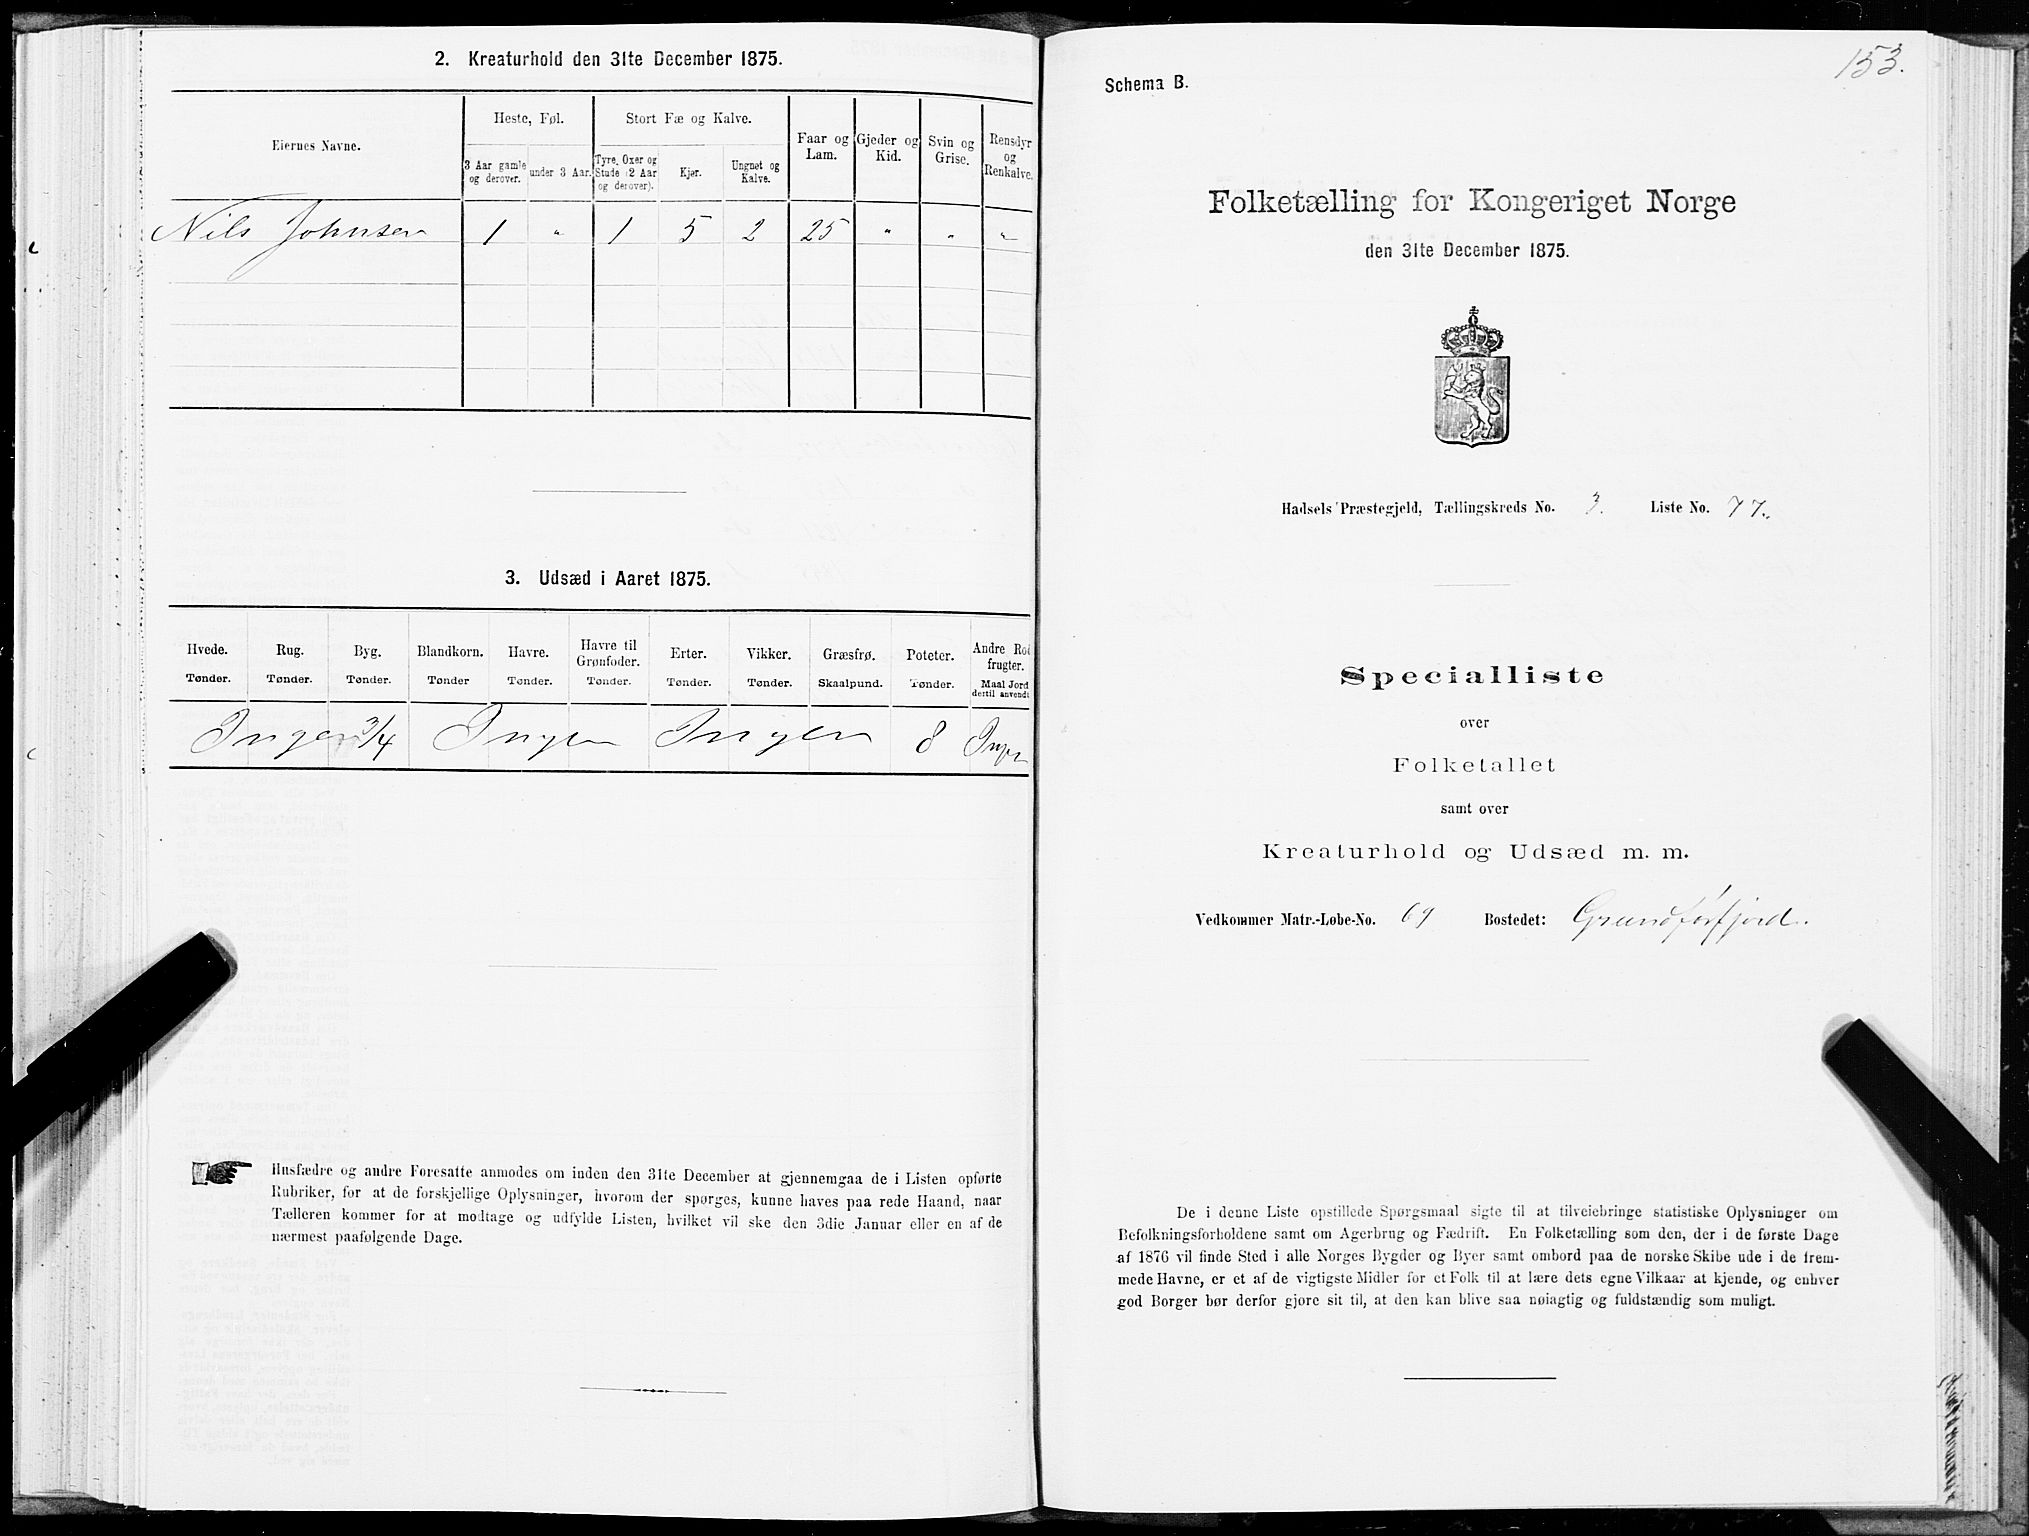 2. Kreaturhold den 31te December 1875.
Eiernes Navne.
Heste, Føl.
Stort Fæ og Kalve.
Faar og Lam.
Gjeder og Kid.
Svin og Grise.
Rensdyr og Renkalve.
3 Aar gamle og derover.
under 3 Aar.
Tyre, Oxer og Stude (2 Aar og derover).
Kjør.
Ungnet og Kalve.
Nils Johnsen 1 " 1 5 2 25 " " "
3. Udsæd i Aaret 1875.
Hvede. Rug. Byg. Blandkorn. Havre. Havre til Grønfoder. Erter. Vikker. Græsfrø. Poteter. Andre Rodfrugter.
Tønder. Tønder. Tønder. Tønder Tønder. Tønder. Tønder. Tønder. Skaalpund. Tønder. Maal Jord dertil anvendt
Ingen 3/4 Ingen Ingen 8 Ingen
Husfædre og andre Foresatte anmodes om inden den 31te December at gjennemgaa de i Listen opførte
Rubriker, for at de forskjellige Oplysninger, hvorom der spørges, kunne haves paa rede Haand, naar
Tælleren kommer for at modtage og udfylde Listen, hvilket vil ske den 3die Januar eller en af de
nærmest paafølgende Dage.
153.
Schema B.
Folketælling for Kongeriget Norge
den 31te December 1875.
Hadsels Præstegjeld, Tællingskreds No. 3. Liste No. 77.
Specialliste
over
Folketallet
samt over
Kreaturhold og Udsæd m. m.
Vedkommer Matr.-Løbe-No. 69 Bostedet: Grundførfjord.
De i denne Liste opstillede Spørgsmaal sigte til at tilveiebringe statistiske Oplysninger om
Befolkningsforholdene samt om Agerbrug og Fædrift. En Folketælling som den, der i de første Dage
af 1876 vil finde Sted i alle Norges Bygder og Byer samt ombord paa de norske Skibe ude i de frem-
mede Havne, er et af de vigtigste Midler for et Folk til at lære dets egne Vilkaar at kjende, og enhver
god Borger bør derfor gjøre sit til, at den kan blive saa nøiagtig og fuldstændig som muligt.